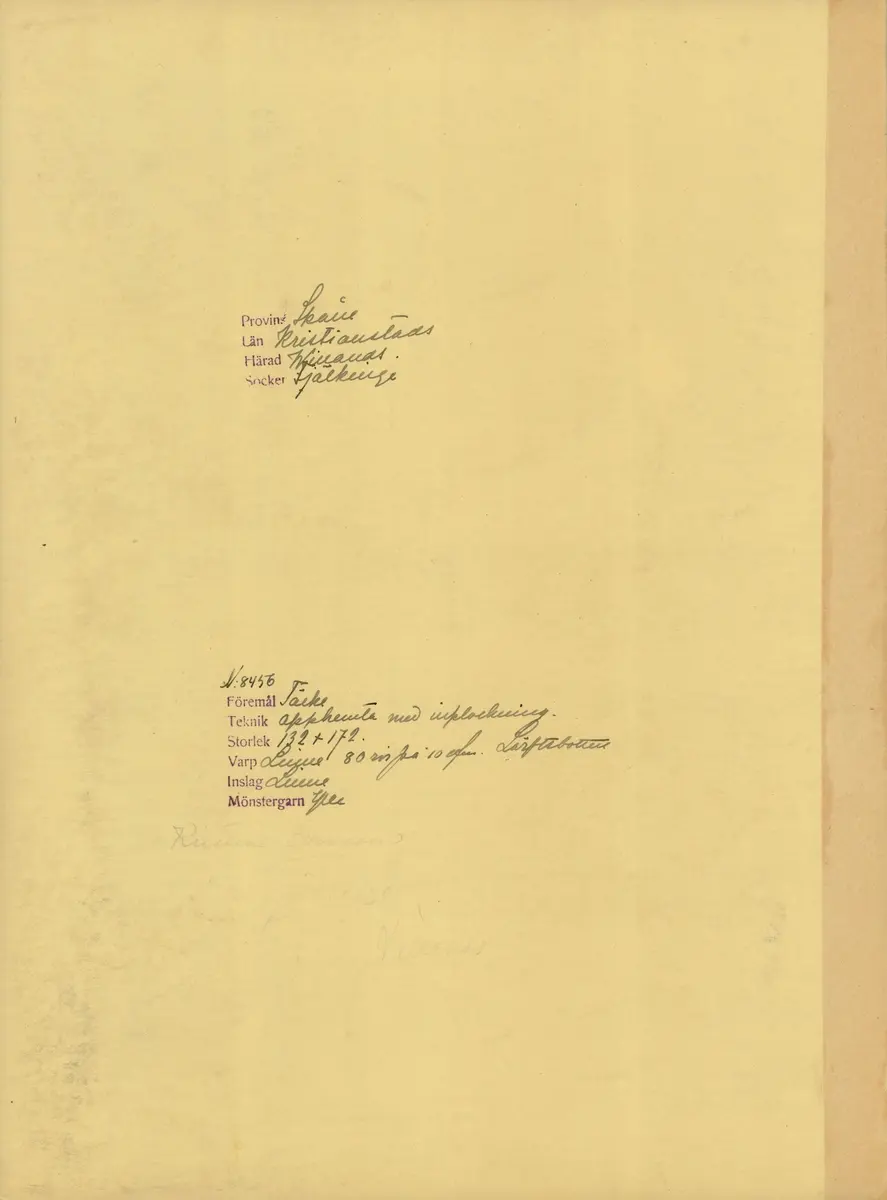 Provins Skåne
Län Kristianstads
Härad Willands.
Socken Fjälkinge
N:8456
Föremål Täcke
Teknik Upphemta med inplockning.
Storlek 132 + 172.
Varp Linne 80 rör på 10 cfm. Lärftsbotten
Inslag Linne
Mönstergarn Ylle